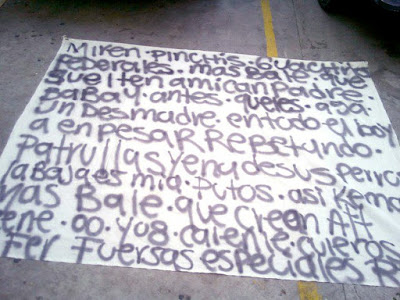 Miren. pinchis. Guachitos
Federales. mas Bale. que
sueltén amicanpadre.
BaBay. antes. queles. aga
un Desmadre. entodo. el boy
a enpesar Rebetundo.
Patrullas yenadesus perros
LaBaja es mia. putos. asi Kemo
Mas Bale. que crean Att
ene. 00. y 08. caliente. quieros
Fer Fuersas especiales R